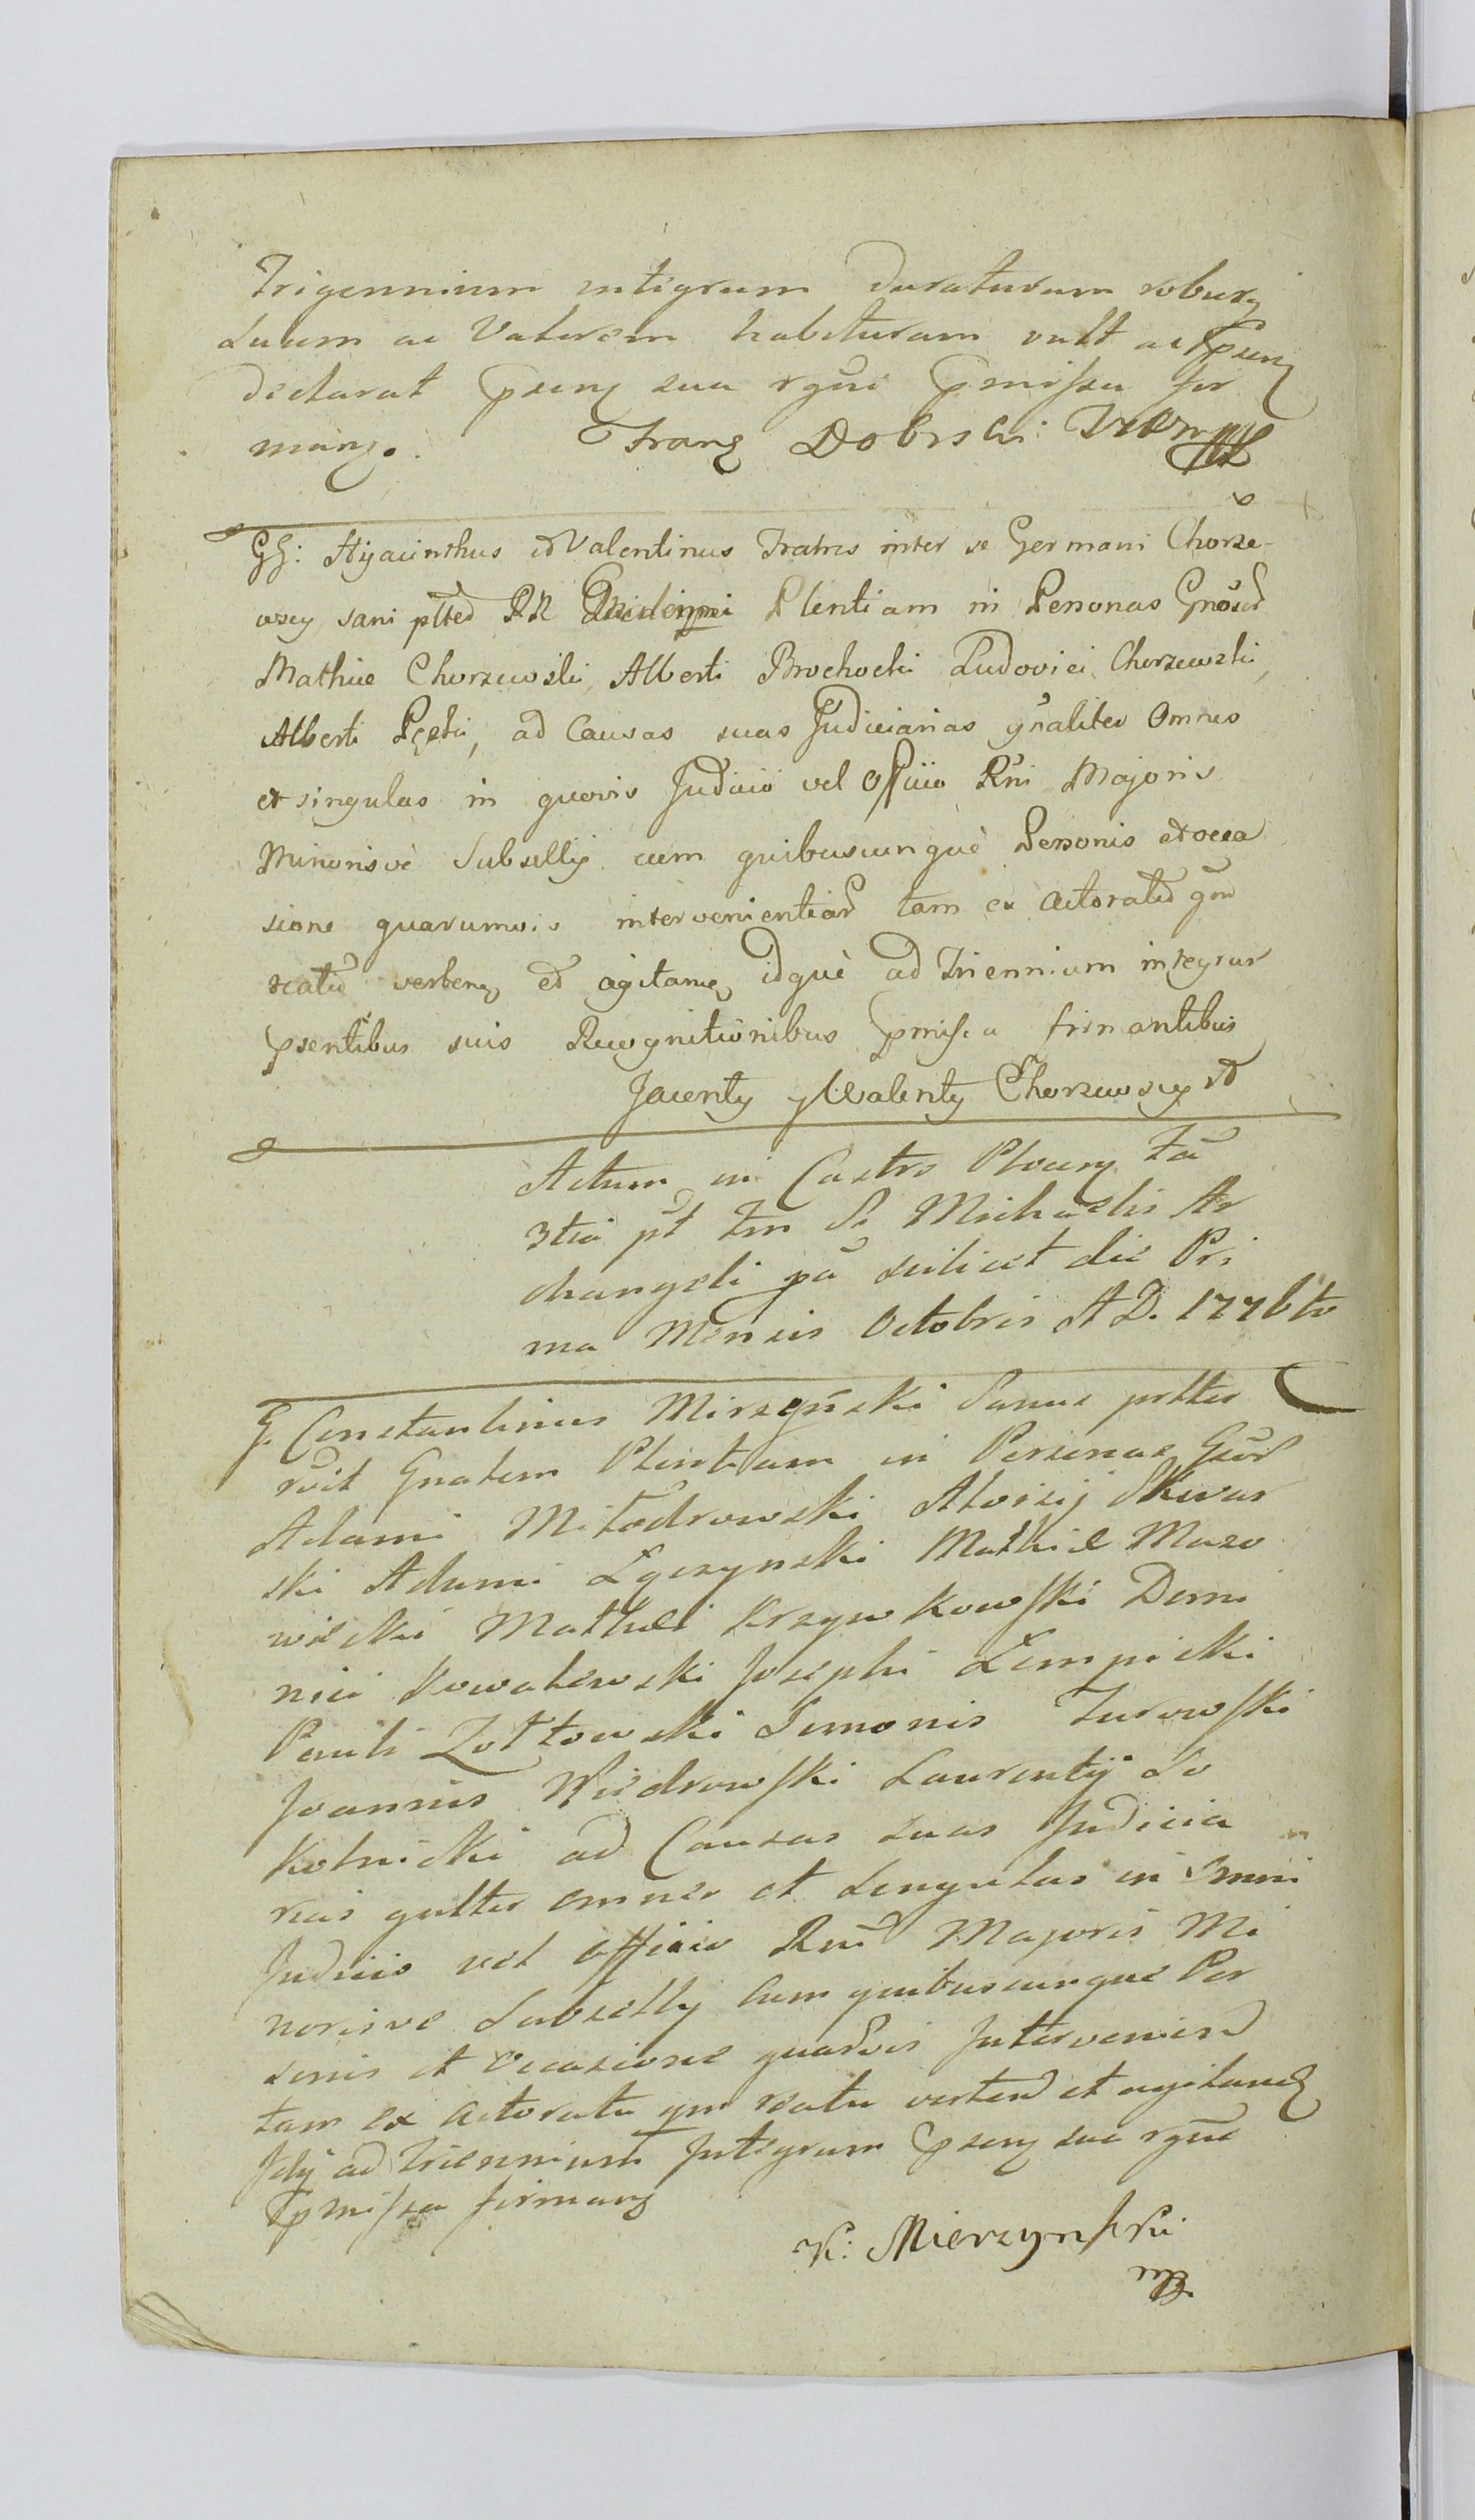 Trigennium integrum duraturam robury
suum ac Valorem habituram vult ac psenty
declarat pseny sua rgni pmissa fir
many. Franc Dobrski
GG: Hyacinthus et Valentinus Fratres inter se Germani Chorze-
wscy sani ptted RR Plentiam in Personas Gnosd
Mathiæ Chorzewski, Alberti Brochocki Ludovici Chorzewski,
Alberti ad Causas suas Judiciarias gnaliter Omnes
et singulas in quovis Judicio vel Officio Rni Majoris
Minorisvè Subsellij cum quibuscunquè Personis et occa
sione quarumvis intervenientiad tam ex actoratu qm
reatu verteny et agitany idquè ad Triennium integrum
psentibus suis Recognitionibus pmissa firmantibus
Jacenty y Walenty Chorzewscy
Actum in Castro Ploceny Fa
3tia pt Fm S. Michaelis Ar
changeli pa scilicet die Pri
ma Mensis Octobris A D. 1776to
G. Constantinus Mirzeyński Sanus pttes
rvit Gnalem Plentiam in Personas Gsod
Adami Miłodrowski Aloisij Skwar
ski Adami Łęczynski Mathiæ Mazo
wiecki Mathei Krzywkowski Domi
nici Kowalewski Josephi Łempicki
Pauli Zołtowski Simonis Turowski
Joannis Wiedrowski Laurentij So
kolnicki ad Causas suas Judicia
rias gnlter omnes et Singulas in Omni
Judicio vel Officio Rni Majoris Mi
norisve Subselly cum quibuscunque Per
sonis et Occasione quarvis Interveniend
tam ex actoratu qm reatu vertend et agitand
Idq ad Triennium Integrum pseny sua rgne
pmissa firmany
K: Mierzynski
mp